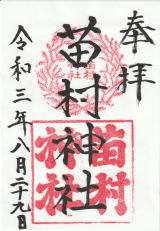 奉拝
苗村神社
令和三年八月二十九日
苗村
神社